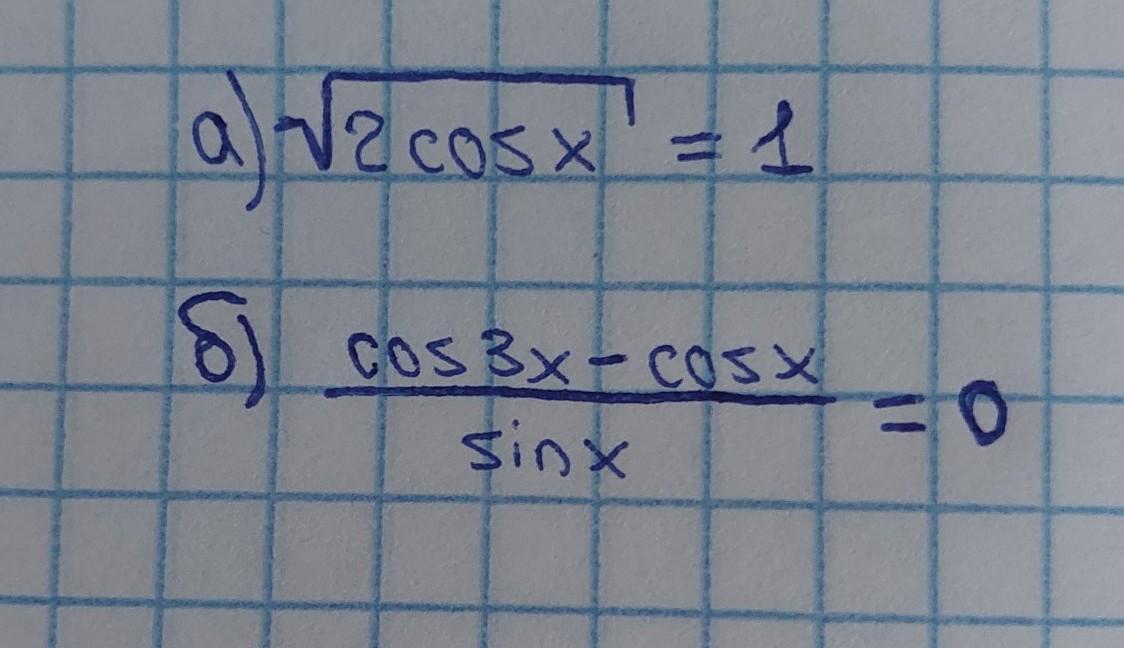 а) √2cosx = 1
б) cos3x - cosx
sinx = 0